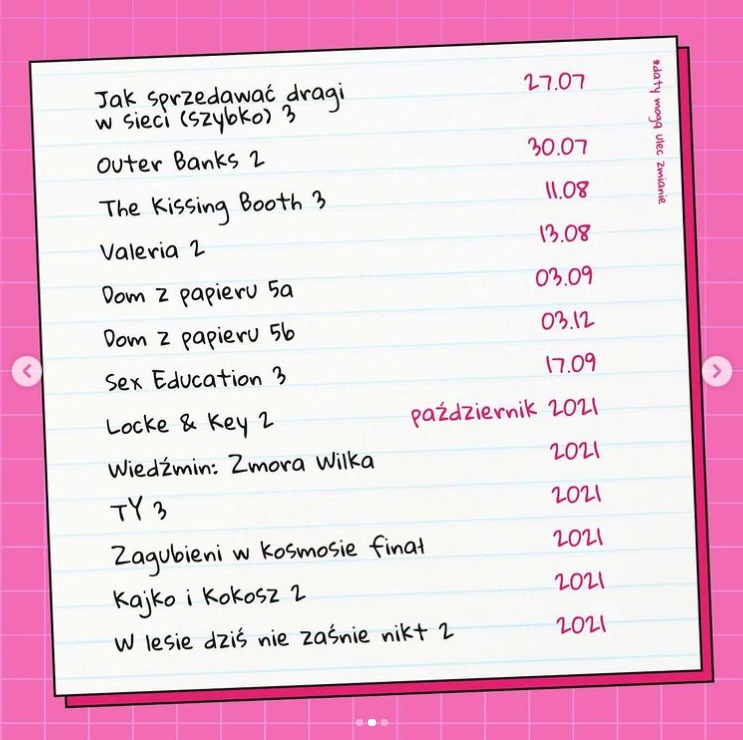 Jak sprzedawać dragi 27.07
w sieci (szybko) 3
Outer Banks 2 30.07
The Kissing Booth 3 11.08
Valeria 2 13.08
Dom z papieru 5a 03.09
Dom z papieru 5b 03.12
Sex Education 3 17.09
Locke & Key 2 październik 2021
Wiedźmin: Zmora Wilka 2021
TY 3 2021
Zagubieni w kosmosie finał 2021
Kajko i Kokosz 2 2021
W lesie dziś nie zaśnie nikt 2 2021
*daty mogą ulec zmianie